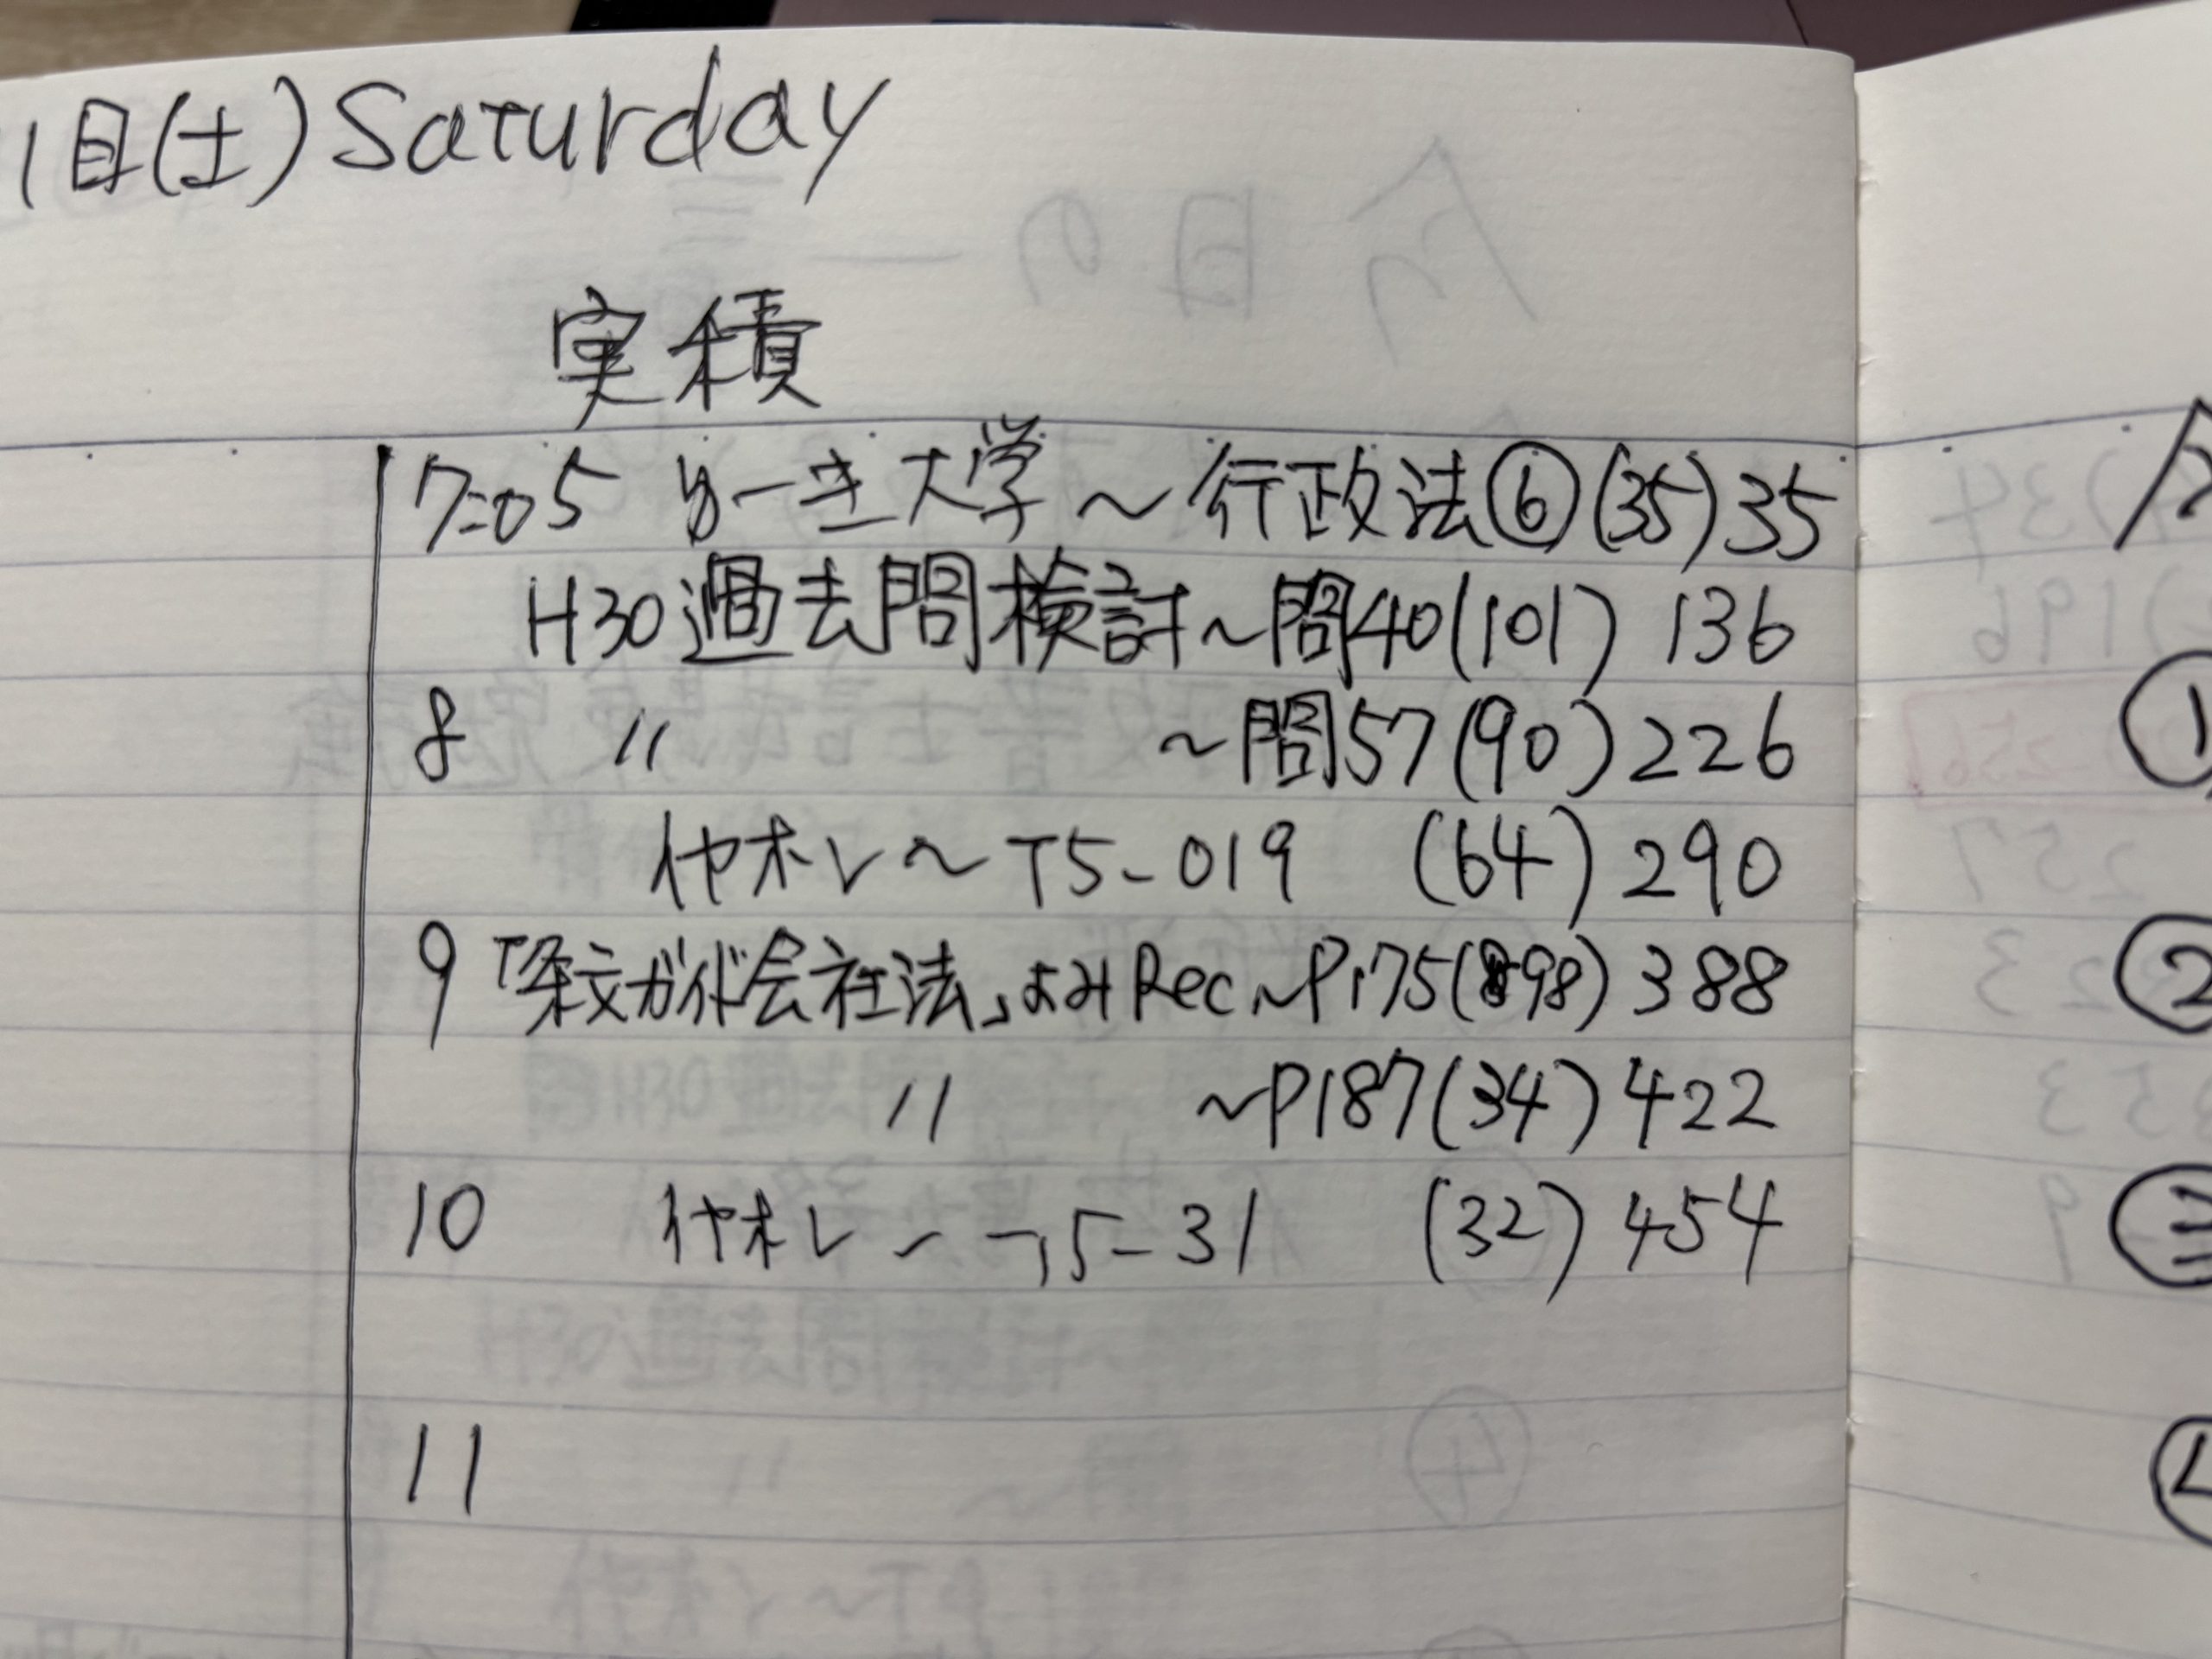 1日(土) Saturday
実積
7:05 ゆーき大学～行政法⑥(35)35
H30過去問検討～問40(101) 136
8 〃 ～問57(90)226
イヤホレ～T5-019 (64)290
9 「条文ガイド会社法」よみRec～P175(98)388
〃 ～P187(34)422
10 イヤホレ～T5-31 (32)454
11
①
②
③